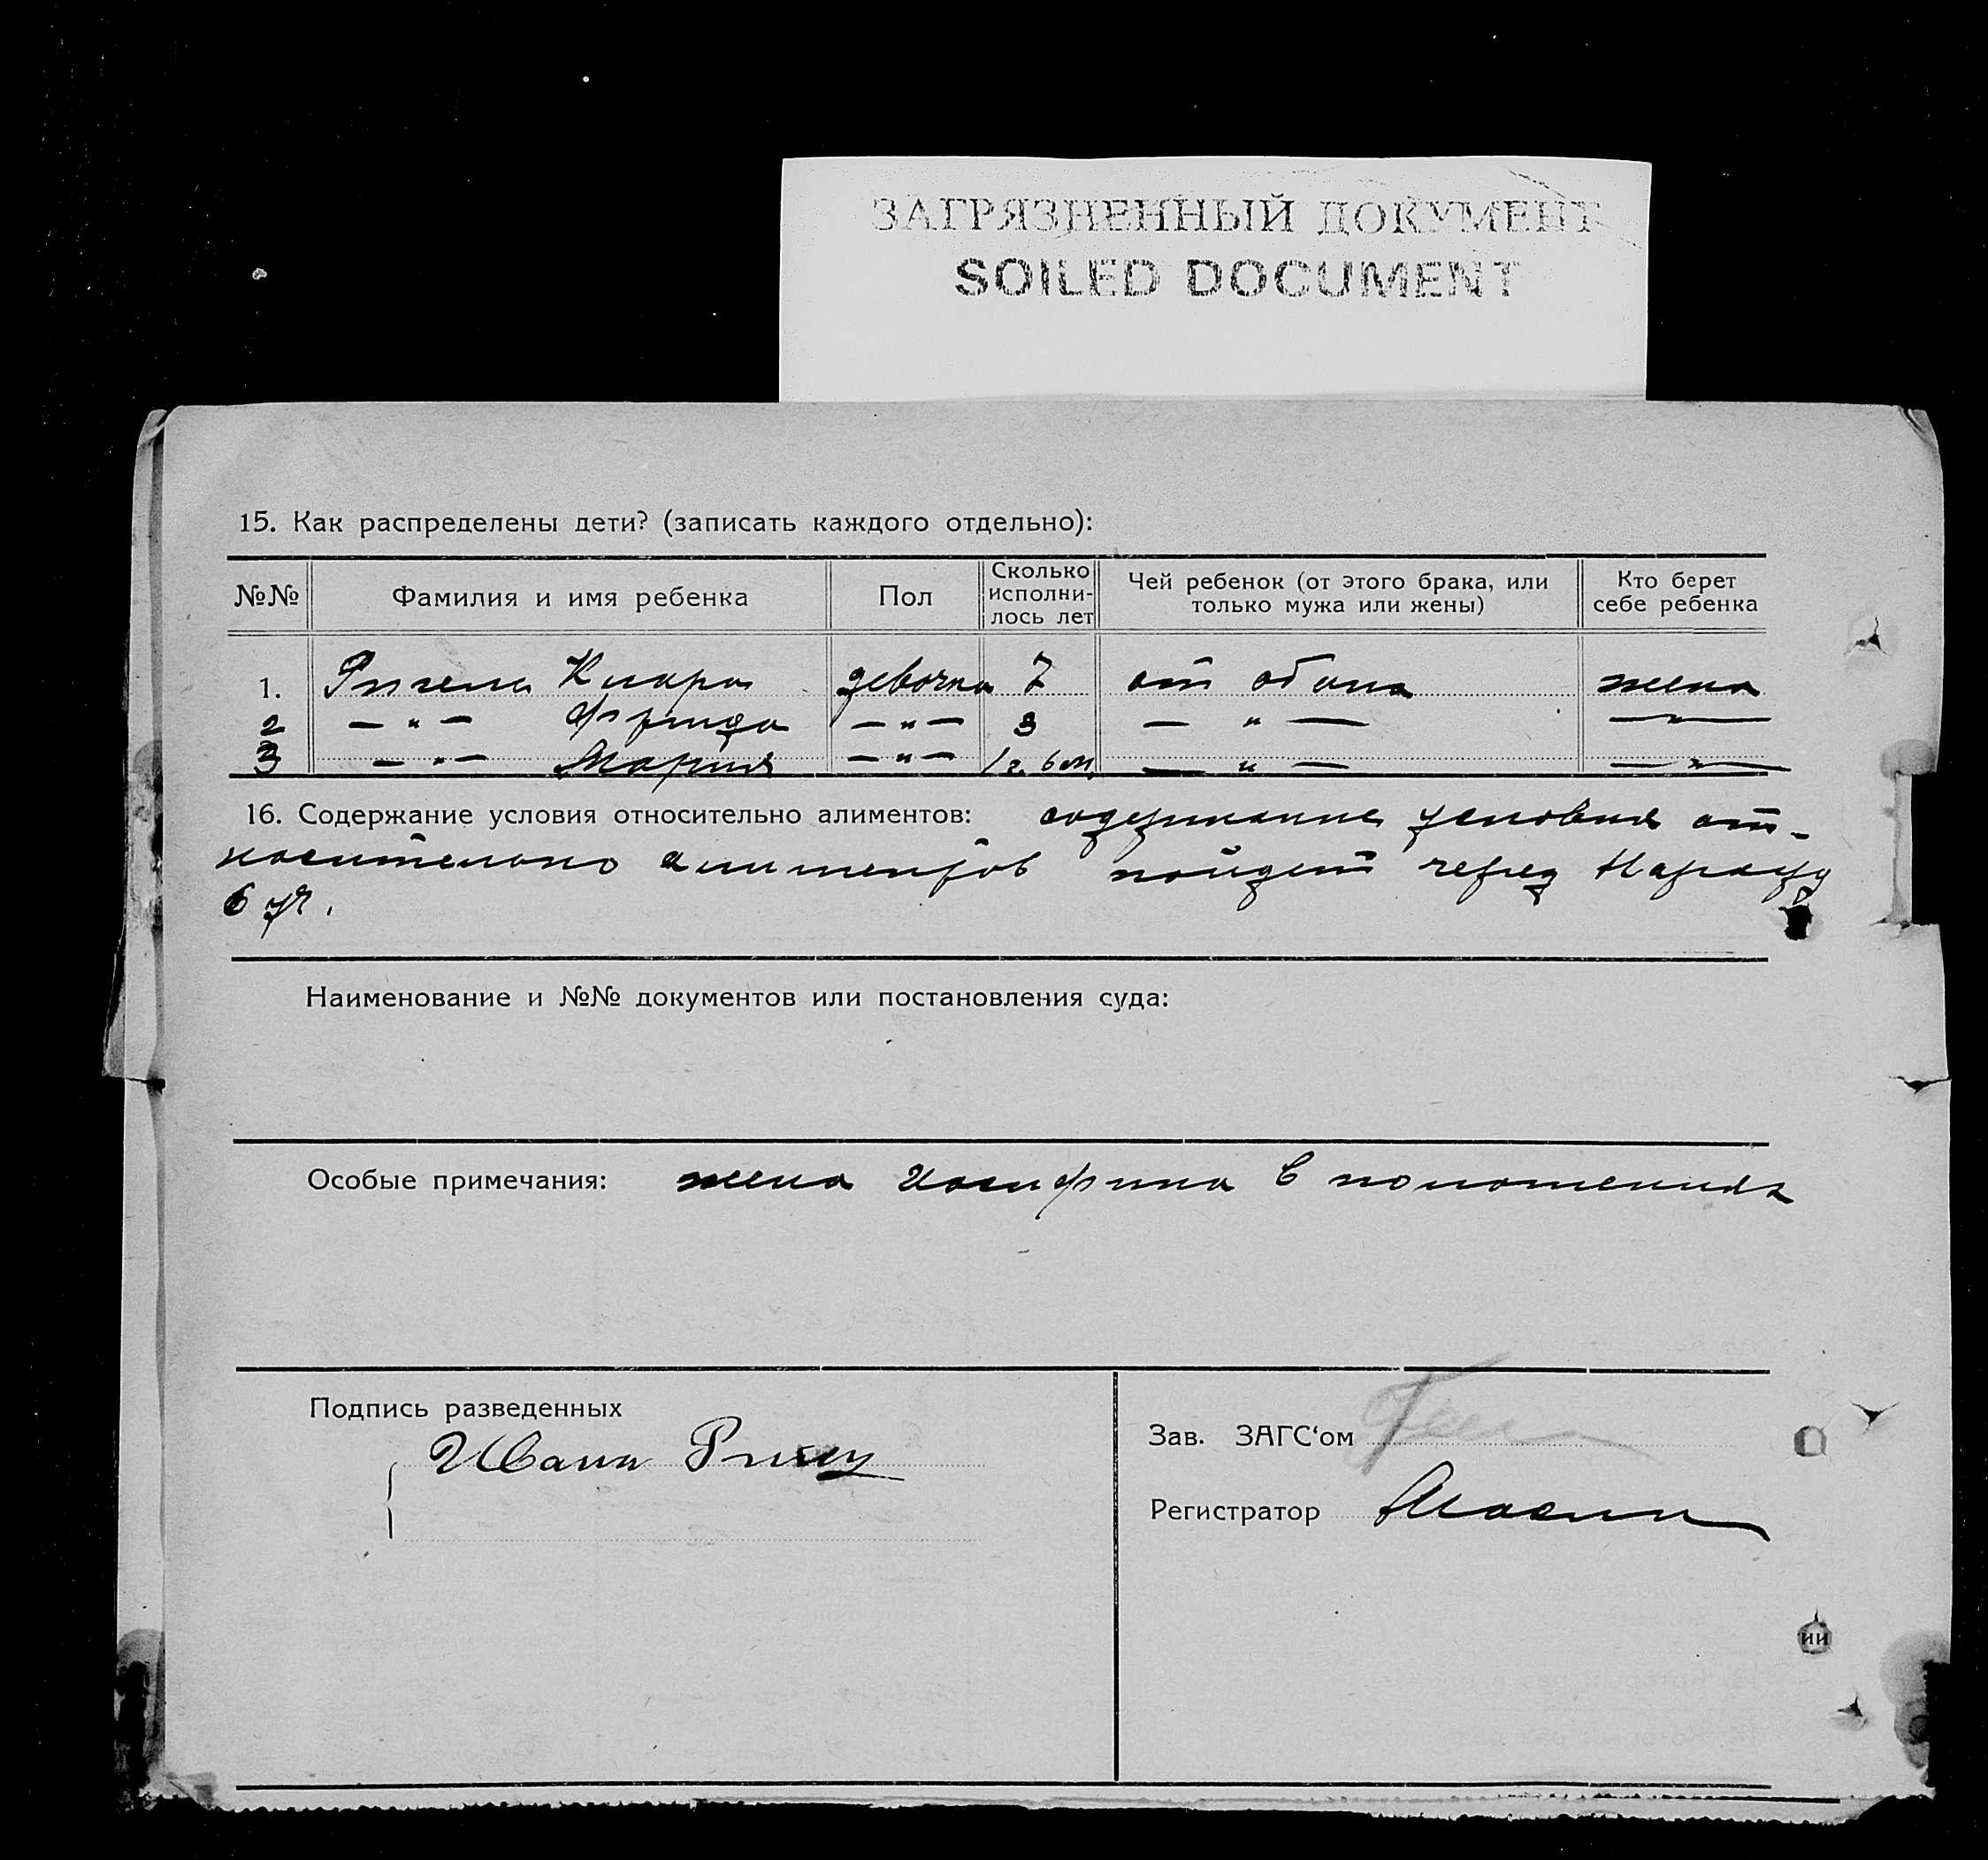 ЗАГРЯЗНЕННЫЙ ДОКУМЕНТ
SOILED DOCUMENT
15. Как распределены дети? (записать каждого отдельно):
№№ Фамилия и имя ребенка Пол Сколько исполни-лось лет Чей ребенок (от этого брака, или только мужа или жены) Кто берет себе ребенка
1. Клара девочка 7 от обоих жена
2 — " — Фрида — " — 3 — " — — " —
3 — " — Мария — " — 1 г. 6 м. — " — — " —
16. Содержание условия относительно алиментов: содержание условия от-
носительно алиментов пойдет через Нарсуд
6 уч.
Наименование и №№ документов или постановления суда:
Особые примечания: жена в положении
Подпись разведенных
Иван
Зав. ЗАГС‘ом
Регистратор
ии